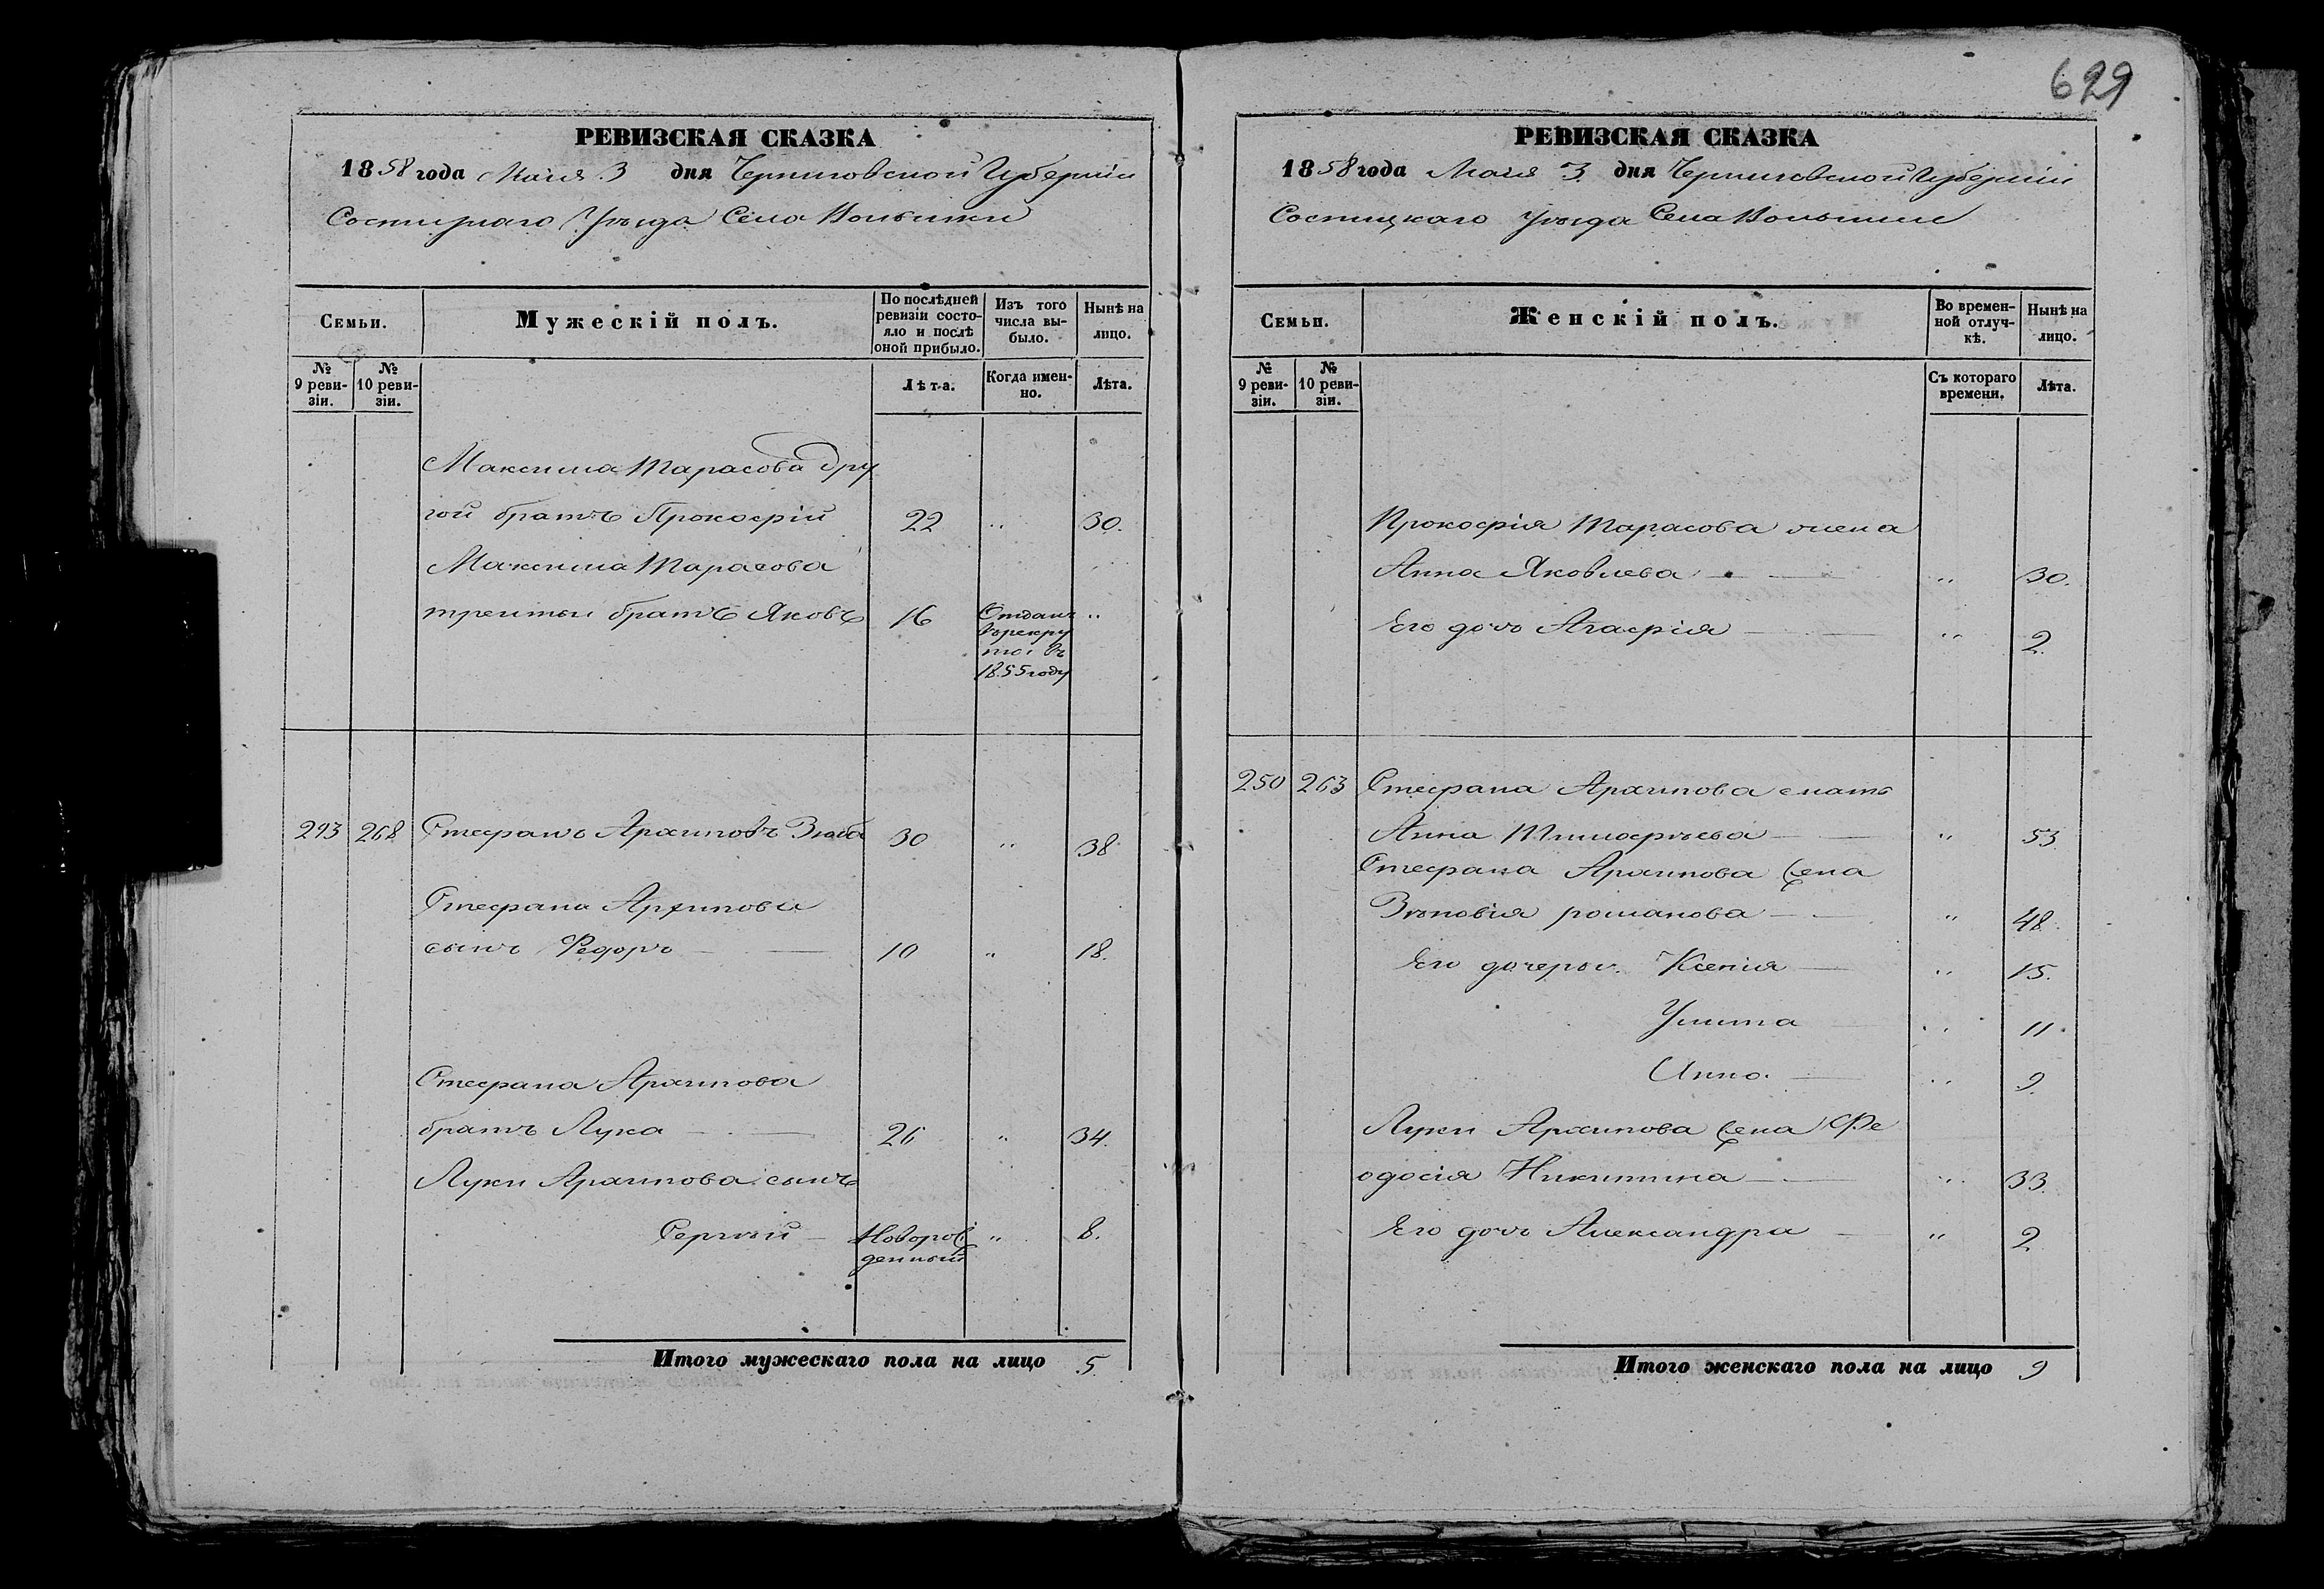 629
РЕВИЗСКАЯ СКАЗКА
1858 года Маія 3 дня Черниговской Губерніи
Сосницкаго Уѣзда Села
Семьи.
Мужескій полъ.
По послѣдней ревизіи состояло и послѣ оной прибыло.
Изъ того числа выбыло.
Нынѣ на лицо.
№ 9 ревизіи.
№ 10 ревизіи.
Лѣта.
Когда именно.
Лѣта.
Максима Тарасова дру
гой братъ Прокофій 22 „ 30.
Максима Тарасова
третьи братъ Яковъ 16 Отданъ „
въ рекру
ты въ
1855 году
293 268 Стефанъ Архиповъ 30 „ 38
Стефана Архипова
сынъ Федоръ 10 „ 18.
Стефана Архипова
братъ Лука 26 „ 34.
Луки Архипова сынъ
Сергѣй Новорож „ 8.
денный
Итого мужескаго пола на лицо 5.
РЕВИЗСКАЯ СКАЗКА
1858 года Маія 3 дня Черниговской Губерніи
Сосницкаго Уѣзда Села
Семьи.
Женскій полъ.
Во временной отлучкѣ.
Нынѣ на лицо.
№ 9 ревизіи.
№ 10 ревизіи.
Съ котораго времени.
Лѣта.
Прокофія Тарасова жена
Анна Яковлева „ 30.
Его дочь Агафія „ 2.
250 263 Стефана Архипова мать
Анна Тимофѣева „ 53
Стефана Архипова жена
Зѣновія романова „ 48.
Его дочеры Ксенія „ 15.
Улита „ 11.
Анна „ 9.
Луки Архипова жена Фе
одосія Никитина „ 33.
Его дочь Александра „ 2
Итого женскаго пола на лицо 9